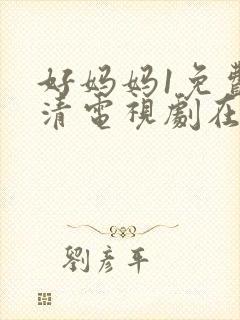 好妈妈1免費
清電視劇在
劉彦平